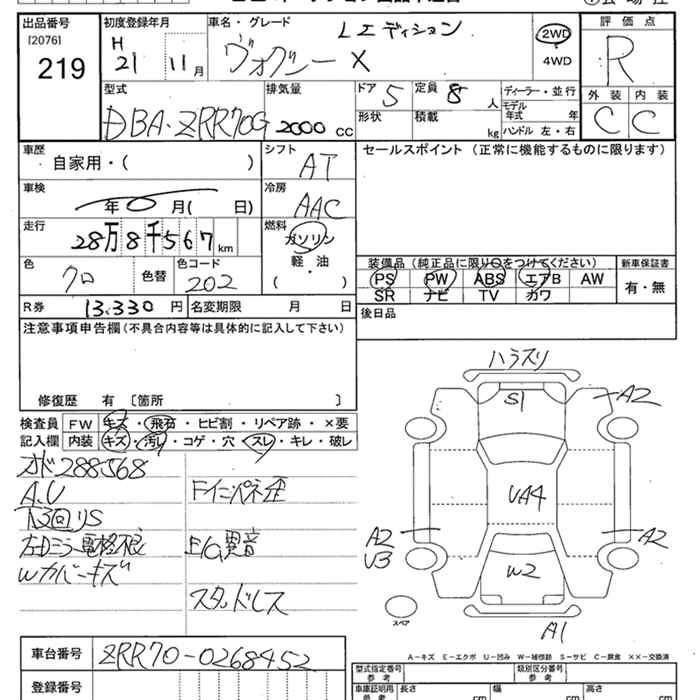 出品番号 初度登録年月 車名・グレード 評価点
[2076]
219
H 21 11月
ヴォクシー X Lエディション
2WD
・
4WD
R
外装 内装
C C
型式 排気量 ドア 5 定員 8人 ディーラー・並行
DBA-ZRR70G 2000 CC
形状 積載 kg モデル年式 年
ハンドル 左・右
車歴 シフト セールスポイント (正常に機能するものに限ります)
自家用・( ) AT
車検 冷房
年 0 月( 日) AAC
走行 燃料
28万8千567km ガソリン
軽・油
( )
色 クロ 色替 色コード 202
装備品(純正品に限り○をつけてください) 新車保証書
PS PW ABS エアB AW 有・無
SR ナビ TV カワ
R券 13,330 円 名変期限 月 日
後日品
注意事項申告欄(不具合内容等は具体的に記入して下さい)
修復歴 有 〔箇所 〕
検査員 FW キズ・飛石・ヒビ割・リペア跡・×要
記入欄 内装 キズ・汚レ・コゲ・穴・スレ・キレ・破レ
オド288568
A.U
下3回りS
左Dミラー電格不良
Wカバーキズ
Fインパネ歪
E/G異音
スタッドレス
ハラスリ
S1
A2
UA4
A2
U3
A2
W2
A1
スペア
A-キズ E-エクボ U-凹み W-補修跡 S-サビ C-腐食 ××-交換済
車台番号 ZRR70-0268452
登録番号
型式指定番号 参考 類別区分番号 参考
車庫証明用 参考 長さ cm 幅 cm 高さ cm